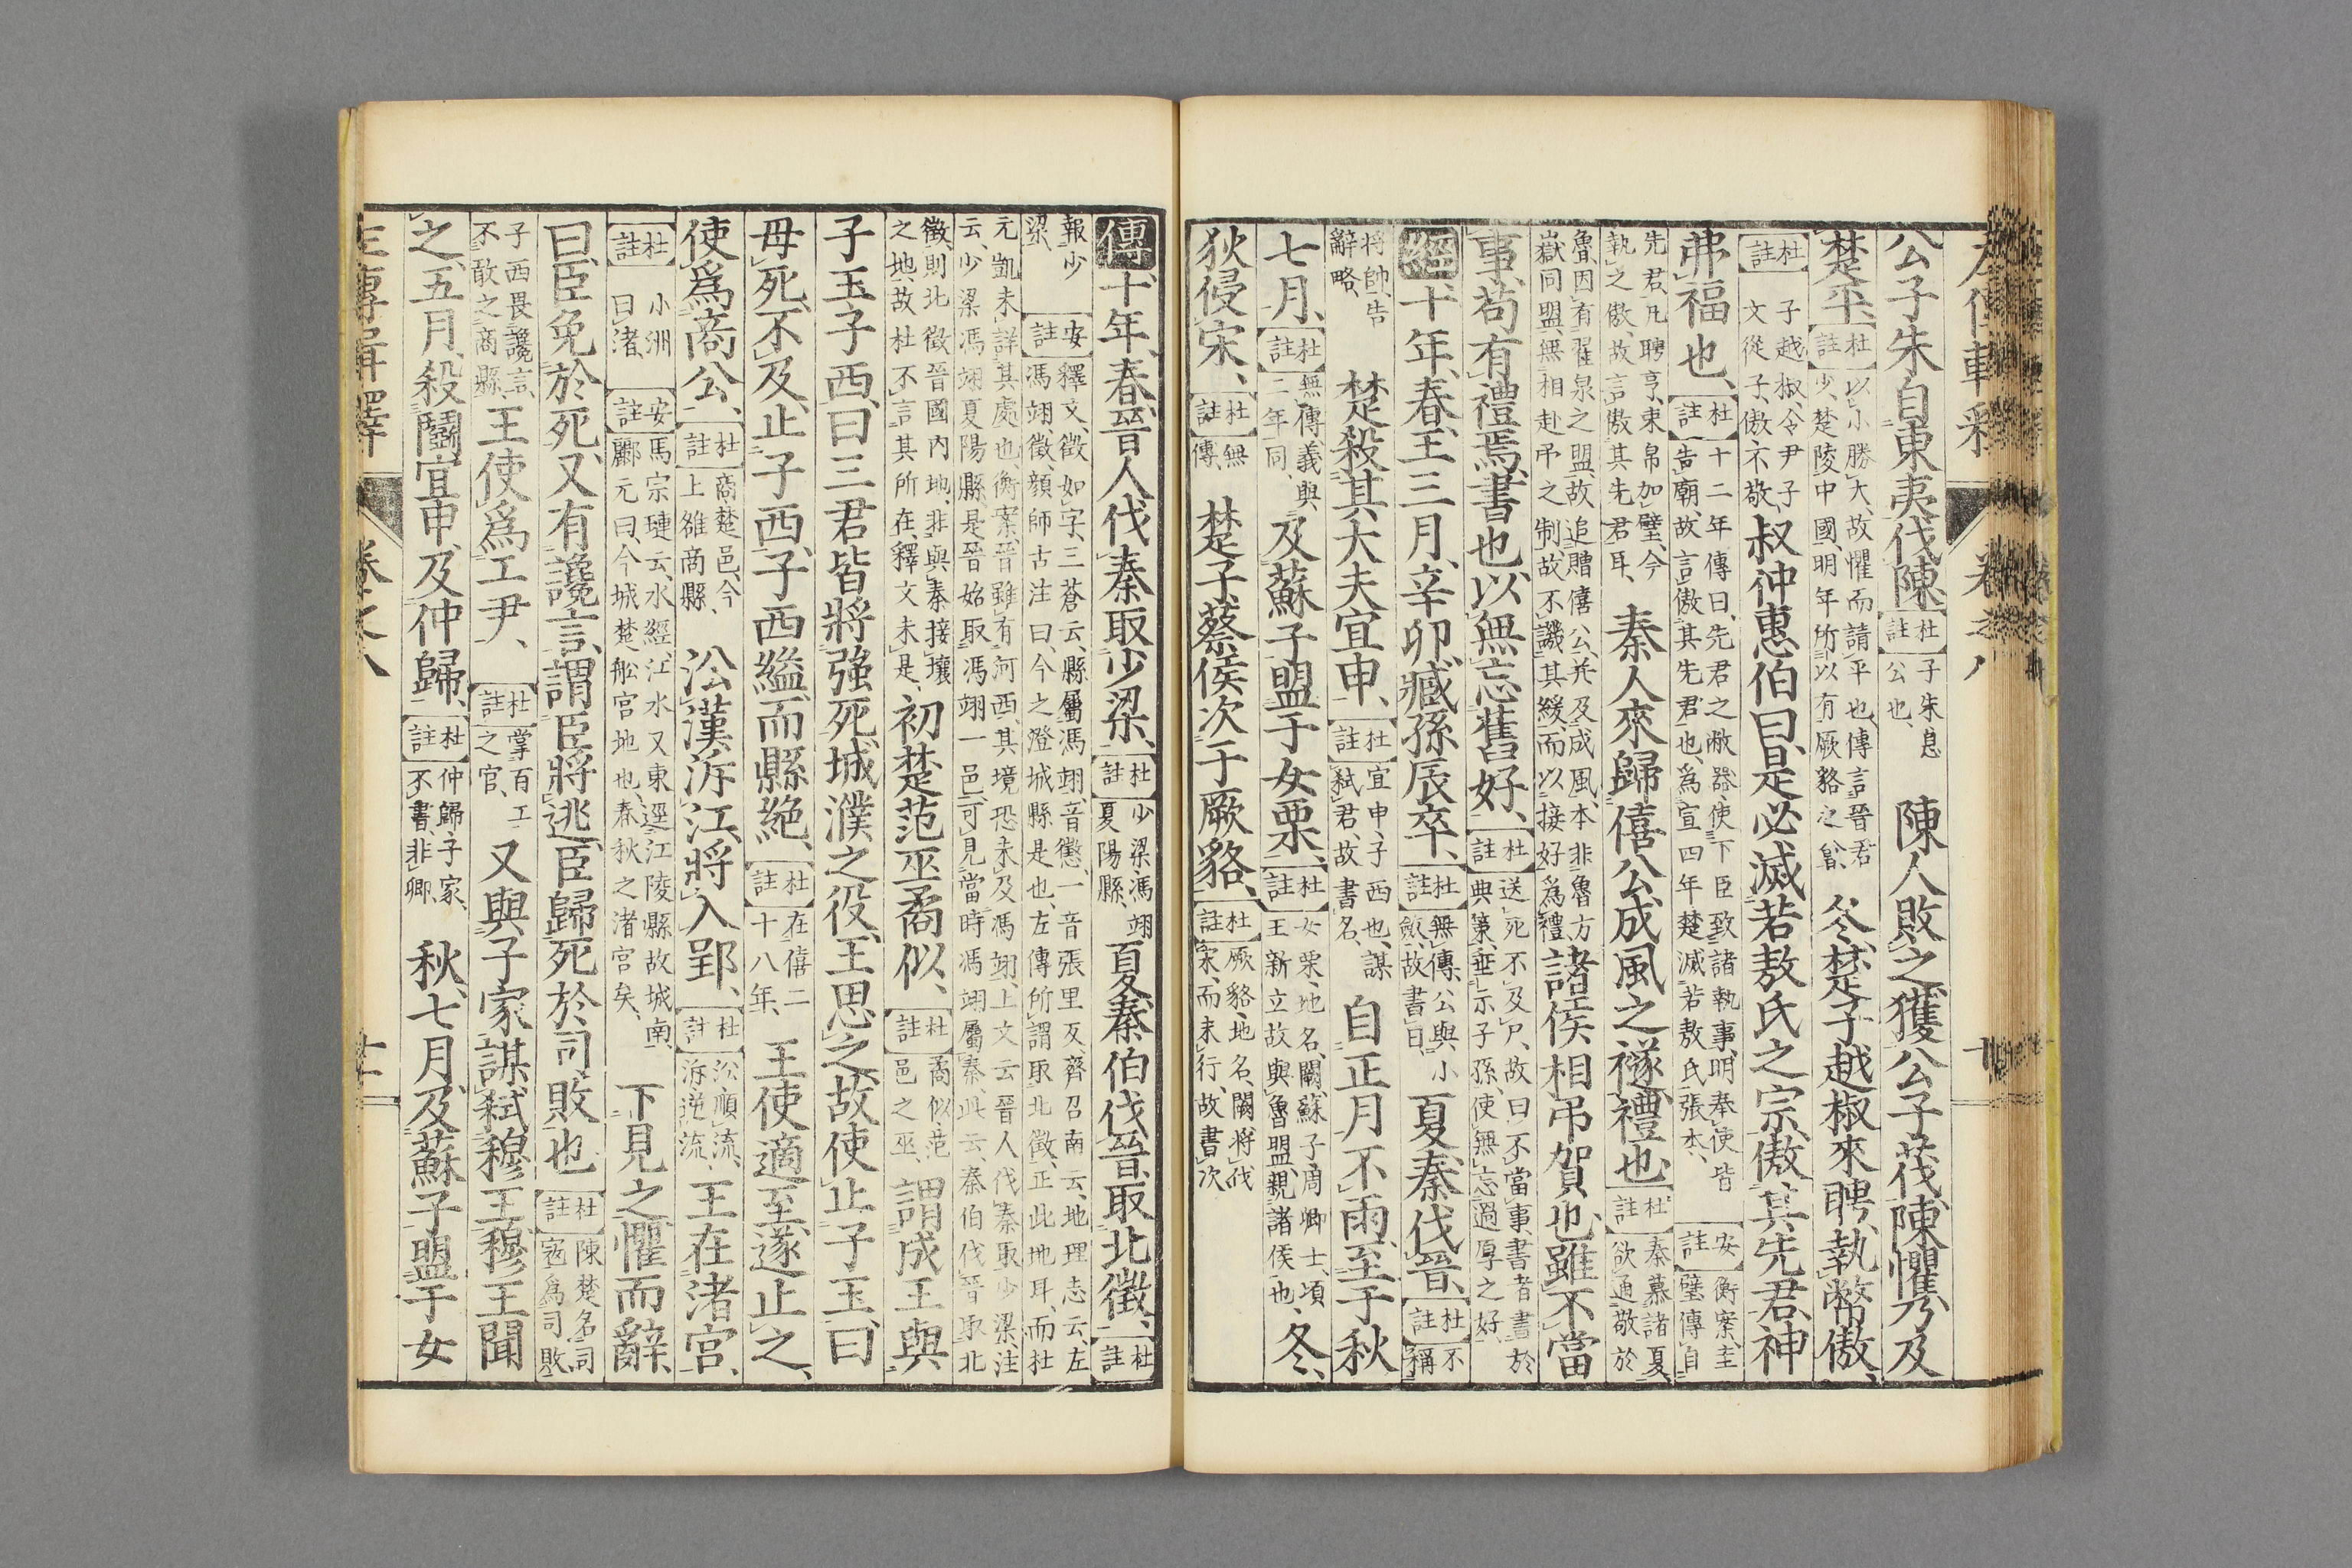 公子朱自東夷伐陳杜註子朱息公也陳人敗之獲公子茷陳懼乃及
楚平杜註以小勝大故懼而請平也傳言晉君少楚陵中國明年所以有厥貉之會冬楚子越椒來聘執幣傲
杜註子越椒令尹子文從子傲不敬叔仲惠伯曰是必滅若敖氏之宗傲其先君神
弗福也杜註十二年傳曰先君之敝器使下臣致諸執事明奉使皆告廟故言傲其先君也為宣四年楚滅若敖氏張本安註衡案圭璧傳自
先君凡聘享束帛加璧今執之傲故言傲其先君耳秦人來歸僖公成風之襚禮也杜註秦慕諸夏欲通敬於
魯因有翟泉之盟故追贈僖公并及成風本非魯方嶽同盟無相赴弔之制故不譏其緩而以接好為禮諸侯相弔賀也雖不當
事苟有禮焉書也以無忘舊好杜註送死不及尸故曰不當事書者書於典策垂示子孫使無忘過厚之好
經十年春王三月辛卯臧孫辰卒杜註無傳公與小斂故書日夏秦伐晉杜註不稱
將帥告辭略楚殺其大夫宜申杜註宜申子西也謀弒君故書名自正月不雨至于秋
七月杜註無傳義與二年同及蘇子盟于女栗杜註女栗地名闕蘇子周卿士頃王新立故與魯盟親諸侯也冬
狄侵宋杜註無傳楚子蔡侯次于厥貉杜註厥貉地名闕將伐宋而未行故書次
傳十年春晉人伐秦取少梁杜註少梁馮翊夏陽縣夏秦伯伐晉取北徵杜註
報少梁安註釋文徵如字三蒼云縣屬馮翊音懲一音張里反齊召南云地理志云左馮翊徵顏師古注曰今之澄城縣是也左傳所謂取北徵正此地耳而杜
元凱未詳其處也衡案晉雖有河西其境恐未及馮翊上文云晉人伐秦取少梁注云少梁馮翊夏陽縣是晉始取馮翊一邑可見當時馮翊屬秦此云秦伯伐晉取北
徵則北徵晉國內地非與秦接壤之地故杜不言其所在釋文未是初楚范巫矞似杜註矞似范邑之巫謂成王與
子玉子西曰三君皆將强死城濮之役王思之故使止子玉曰
毋死不及止子西子西縊而縣絕杜註在僖二十八年王使適至遂止之
使為商公杜註商楚邑今上雒商縣沿漢泝江將入郢杜註沿順流泝逆流王在渚宮
杜註小洲曰渚安註馬宗璉云水經江水又東逕江陵縣故城南酈元曰今城楚船官地也春秋之渚宮矣下見之懼而辭
曰臣免於死又有讒言謂臣將逃臣歸死於司敗也杜註陳楚名司寇為司敗
子西畏讒言不敢之商縣王使為工尹杜註掌百工之官又與子家謀弒穆王穆王聞
之五月殺鬬宜申及仲歸杜註仲歸子家不書非卿秋七月及蘇子盟于女
左傳輯釋 卷之八